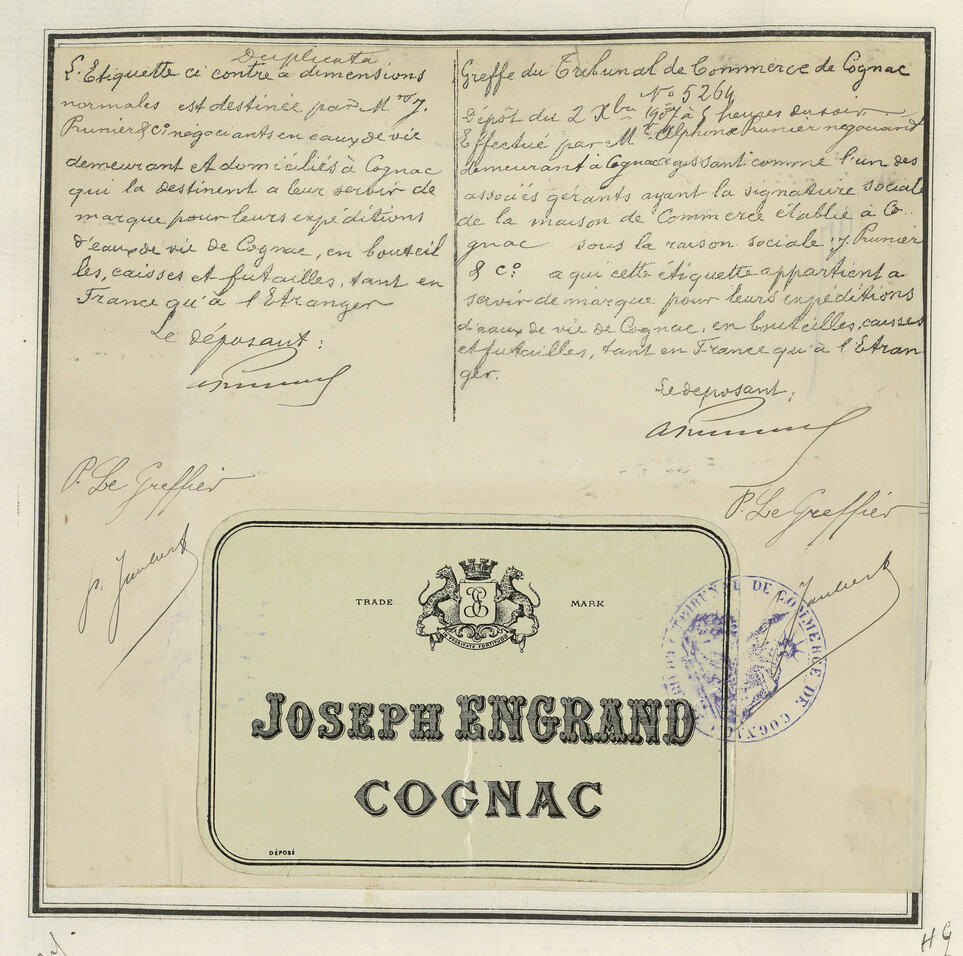 Duplicata
L'Etiquette ci contre a dimensions
normales est destinée par Mrs J.
Prunier & Co négociants en eaux de vie
demeurant et domiciliés à Cognac
qui la destinent a leur servir de
marque pour leurs expéditions
d'eaux de vie de Cognac, en bouteil
les, caisses et futailles, tant en
France qu'à l'Etranger
Le déposant:
P. Le Greffier
Greffe du Tribunal de Commerce de Cognac
No 5264
Dépôt du 2 Xbre 1907 à 5 heures du soir
Effectué par Mr Alphonse Prunier négociant
demeurant à Cognac agissant comme l'un des
associés gérants ayant la signature sociale
de la maison de Commerce établie à Co
gnac sous la raison sociale J. Prunier
& Co a qui cette étiquette appartient a
servir de marque pour leurs expéditions
d'eaux de vie de Cognac, en bouteilles, caisses
et futailles, tant en France qu'à l'Etran
ger.
Le deposant:
P. Le Greffier
TRADE MARK
JOSEPH ENGRAND
COGNAC
DÉPOSÉ
TRIBUNAL DE COMMERCE DE COGNAC